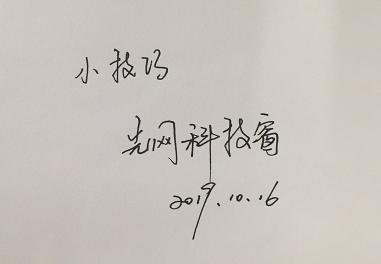 小技巧
光网科技宾
2019.10.16